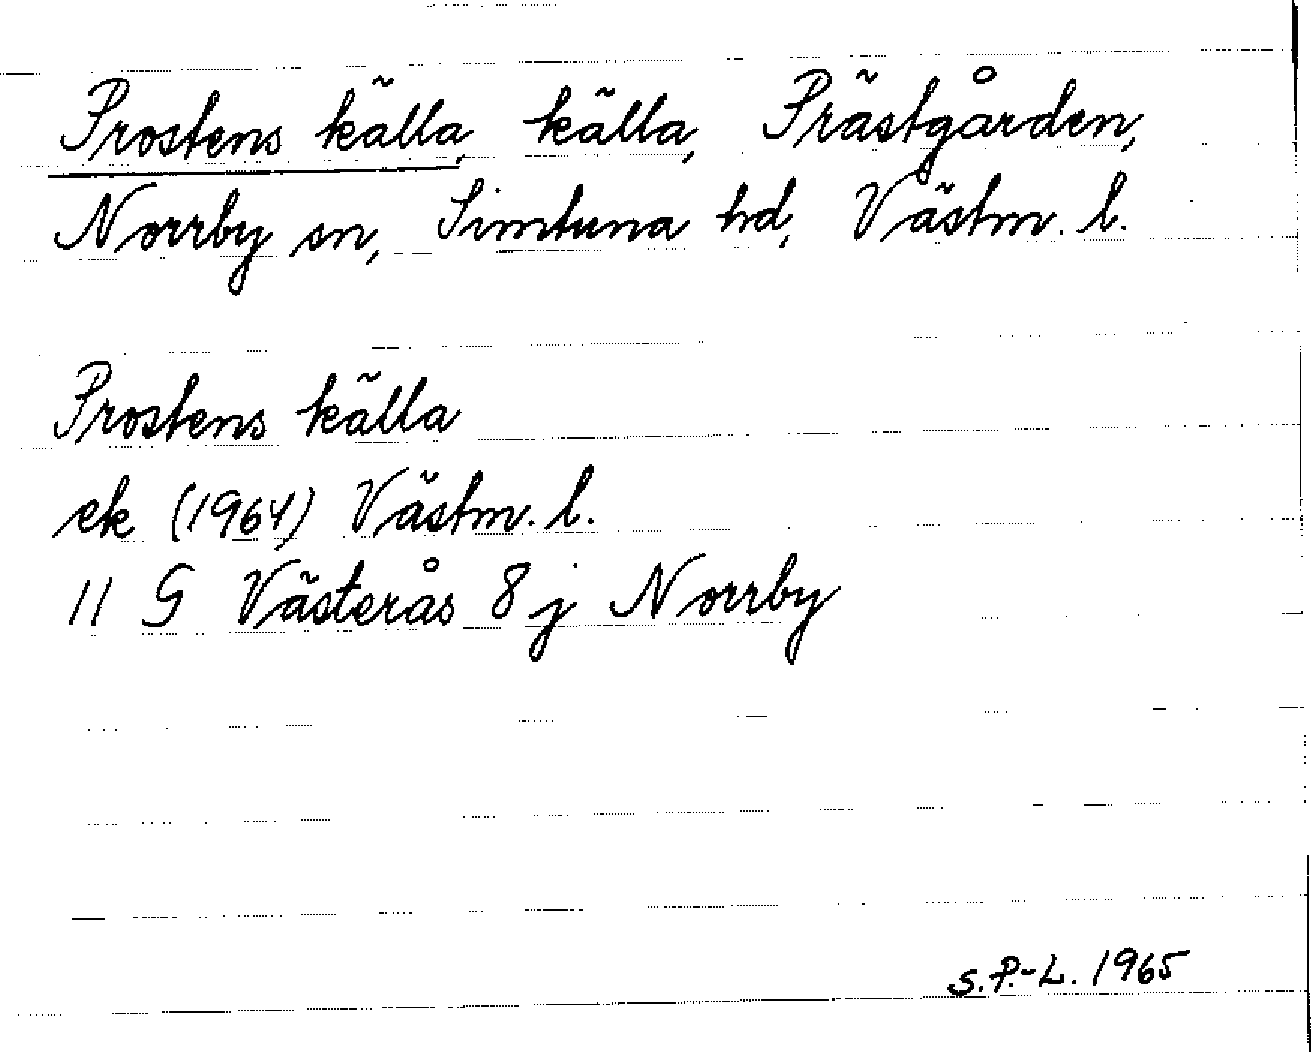 Prostens källa, källa, Prästgården,
Norrby sn, Simtuna hd, Västm. l.
Prostens källa
ek (1964) Västm. l.
11 G Västerås 8 j Norrby
S.P.-L. 1965